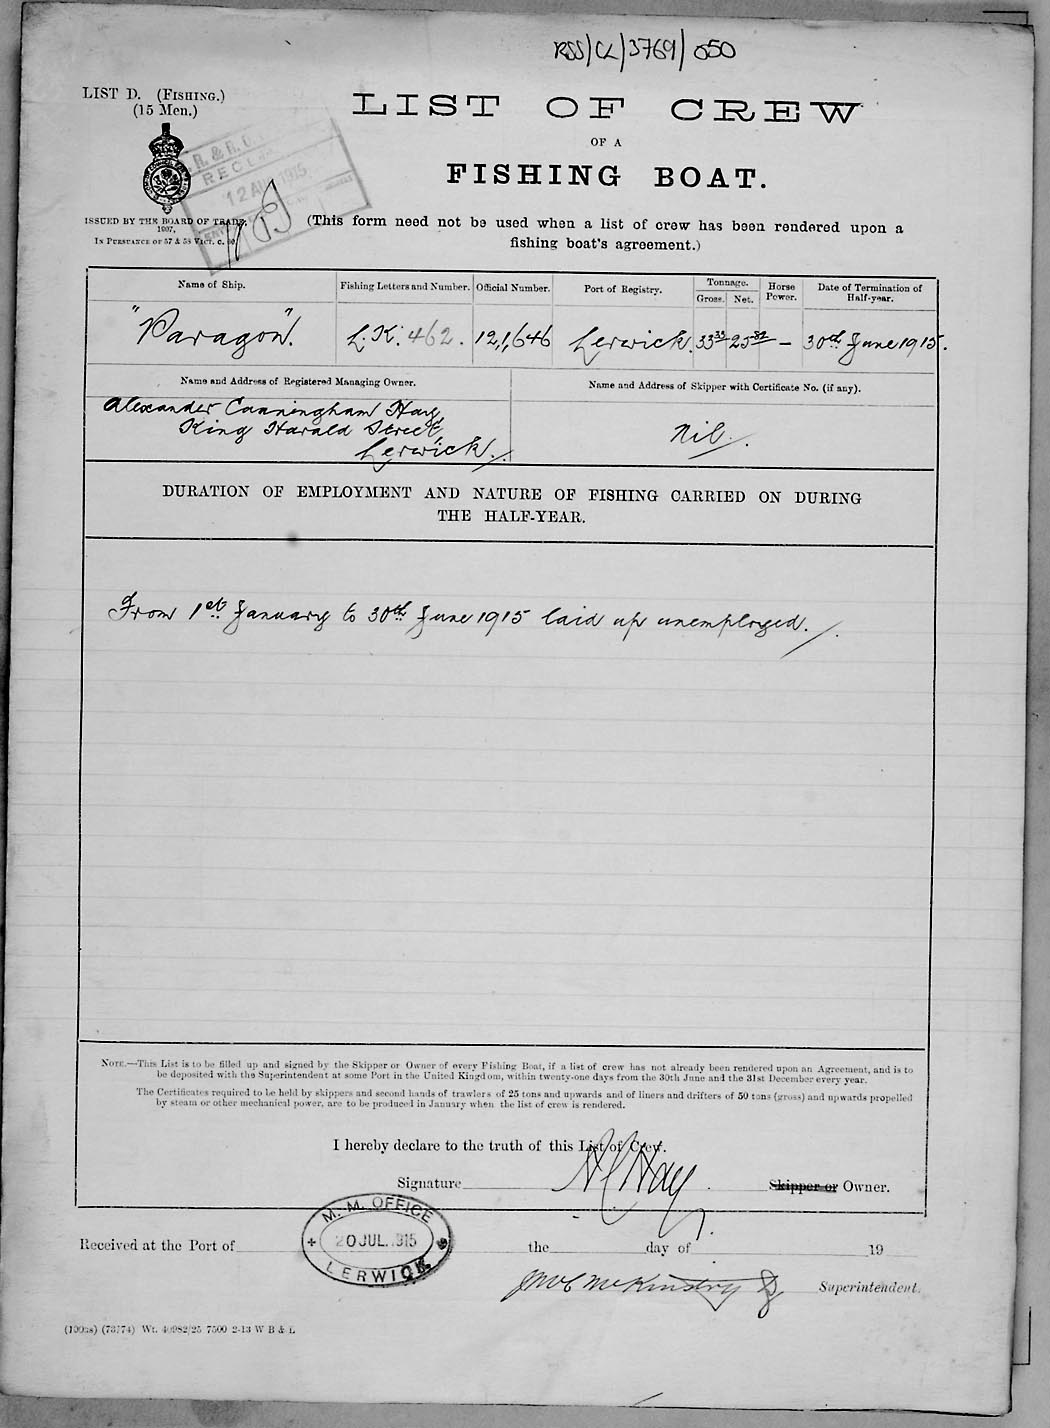 RSS/CL/3769/050
LIST D. (FISHING.)
(15 Men.)
LIST OF CREW
OF A
FISHING BOAT.
RECEIVED
12 AUG 1915
ISSUED BY THE BOARD OF TRADE.
1907.
IN PURSUANCE OF 57 & 58 VICT. C. 60.
(This form need not be used when a list of crew has been rendered upon a
fishing boat's agreement.)
Name of Ship. Fishing Letters and Number. Official Number. Port of Registry. Tonnage. Gross. Net. Horse Power. Date of Termination of Half-year.
"Paragon". L.K. 462. 121,646 Lerwick. 33 25 – 30th June 1915.
Name and Address of Registered Managing Owner. Name and Address of Skipper with Certificate No. (if any).
Alexander Cunningham Hay
King Harald Street,
Lerwick.
Nil.
DURATION OF EMPLOYMENT AND NATURE OF FISHING CARRIED ON DURING
THE HALF-YEAR.
From 1st January to 30th June 1915 laid up unemployed.
NOTE.—This List is to be filled up and signed by the Skipper or Owner of every Fishing Boat, if a list of crew has not already been rendered upon an Agreement, and is to
be deposited with the Superintendent at some Port in the United Kingdom, within twenty-one days from the 30th June and the 31st December every year.
The Certificates required to be held by skippers and second hands of trawlers of 25 tons and upwards and of liners and drifters of 50 tons (gross) and upwards propelled
by steam or other mechanical power, are to be produced in January when the list of crew is rendered.
I hereby declare to the truth of this List of Crew.
Signature A C Hay. Skipper or Owner.
M. M. OFFICE
20 JUL. 1915
LERWICK
Received at the Port of the day of 19
McKinstry Superintendent.
(190as) (73174) Wt. 40982/25 7500 2-13 W B & L